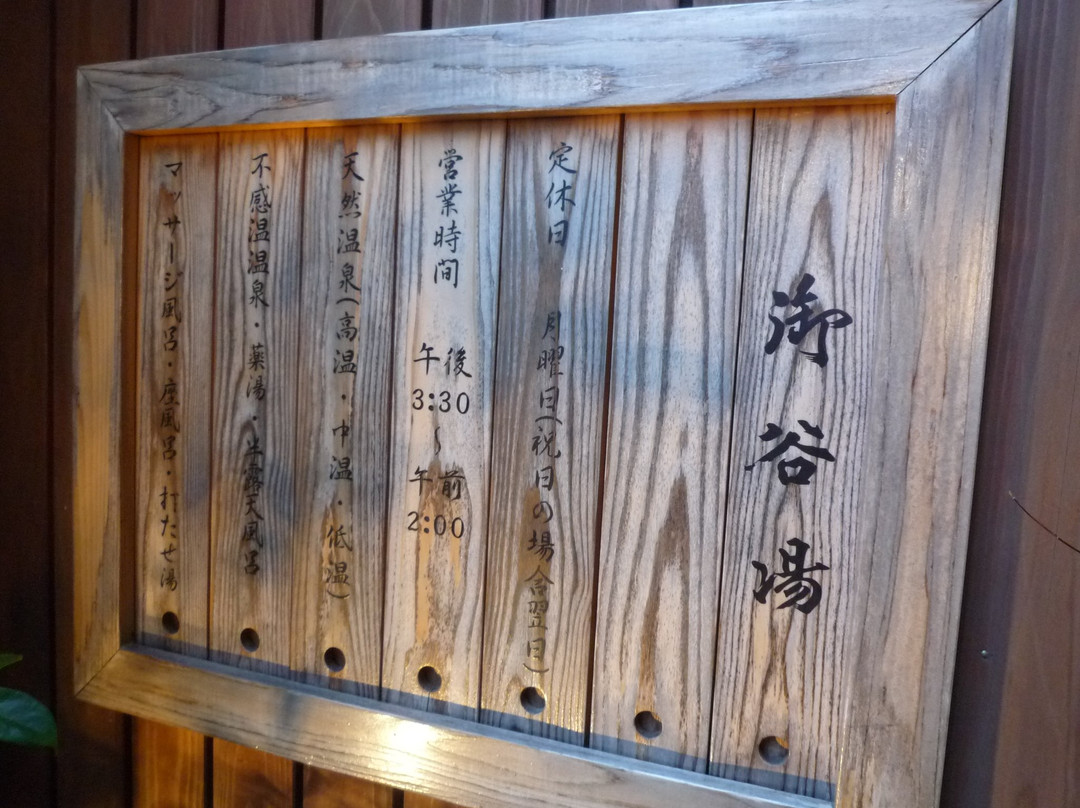 御谷湯
定休日 月曜日(祝日の場合翌日)
営業時間 午後3:30～午前2:00
天然温泉(高温・中温・低温)
不感温温泉・薬湯・半露天風呂
マッサージ風呂・座風呂・打たせ湯